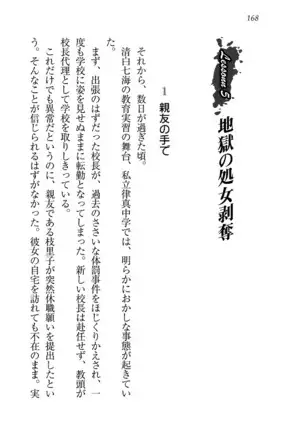 168
Lesson5
地獄の処女剥奪
1 親友の手で
それから、数日が過ぎた頃。
清白七海の教育実習の舞台、私立律真中学では、明らかにおかしな事態が起きてい
た。
まず、出張のはずだった校長が、過去のささいな体罰事件をほじくりかえされ、一
度も学校に姿を見せぬままに転勤となってしまった。新しい校長は赴任せず、教頭が
校長代理として学校を取りしきっている。
これだけでも異常だというのに、親友である枝里子が突然休職願いを提出したとい
う。そんなことが信じられるはずがなかった。彼女の自宅を訪れても不在のまま。実